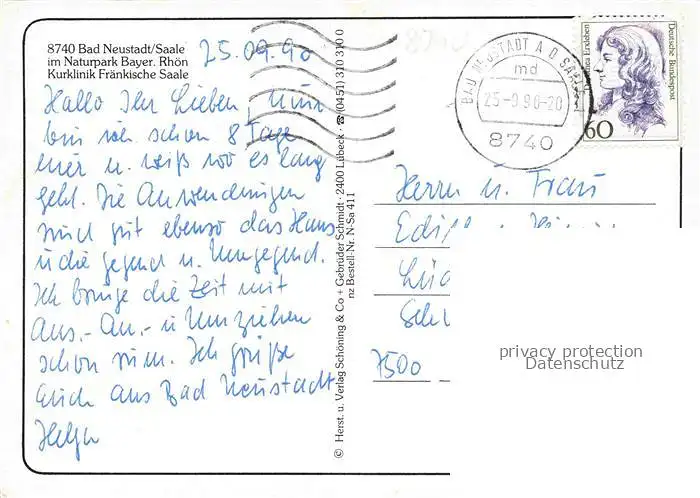 8740 Bad Neustadt/Saale
im Naturpark Bayer. Rhön
Kurklinik Fränkische Saale
25.09.90
Hallo Ihr Lieben, nun
bin ich schon 8 Tage
hier u. weiß wo es lang
geht. Die Anwendungen
sind gut ebenso das Haus
u die gegend u. Umgegend.
Ich bringe die Zeit mit
Aus.- An.- u Umziehen
schon rum. Ich grüße
Euch aus Bad Neustadt
Helga
© Herst. u. Verlag Schöning & Co + Gebrüder Schmidt · 2400 Lübeck · ☎ (0451) 310 310 0
nz Bestell-Nr. N-Sa 411
BAD NEUSTADT A D SAALE
md
25-9.90-20
8740
Deutsche Bundespost
60
Herrn u. Frau
7500
privacy protection
Datenschutz